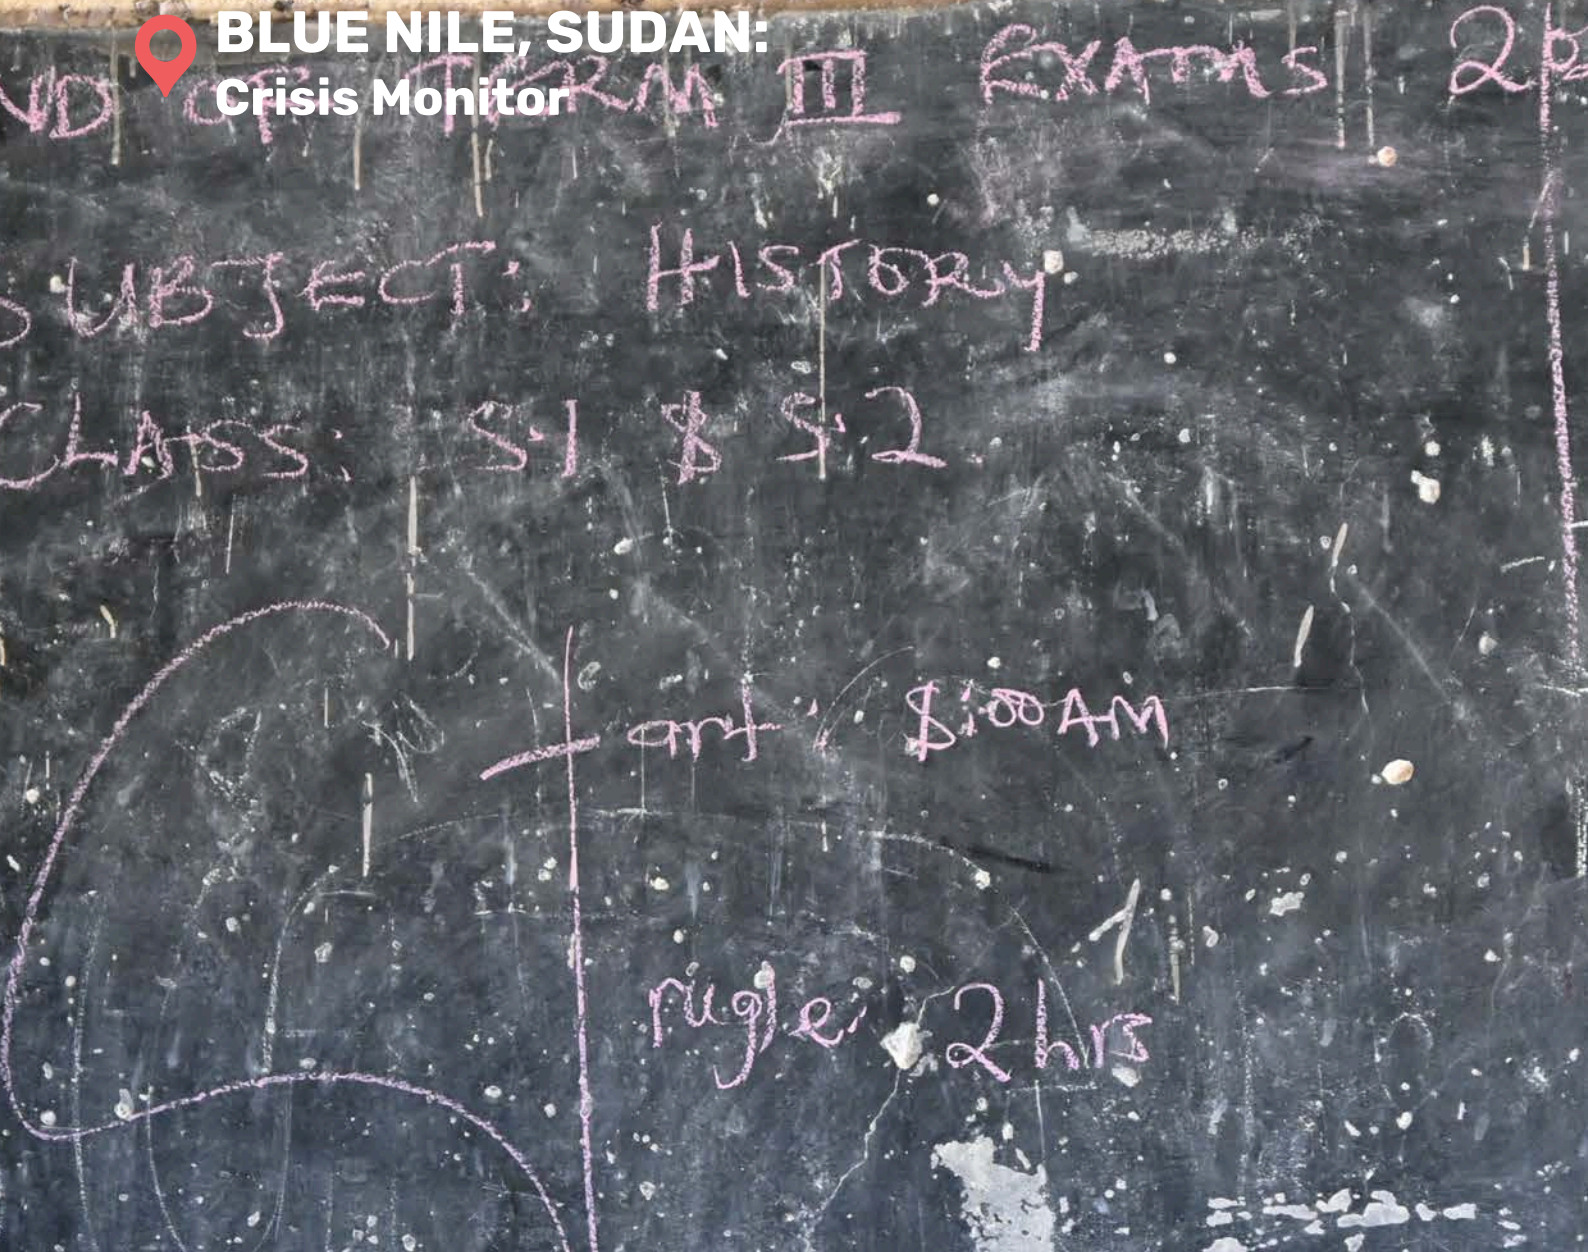 BLUE NILE, SUDAN:
Crisis Monitor
ND OF TERM III EXAMS
SUBJECT: HISTORY
CLASS: S.1 $ S.2
art: 8:00AM
2hrs